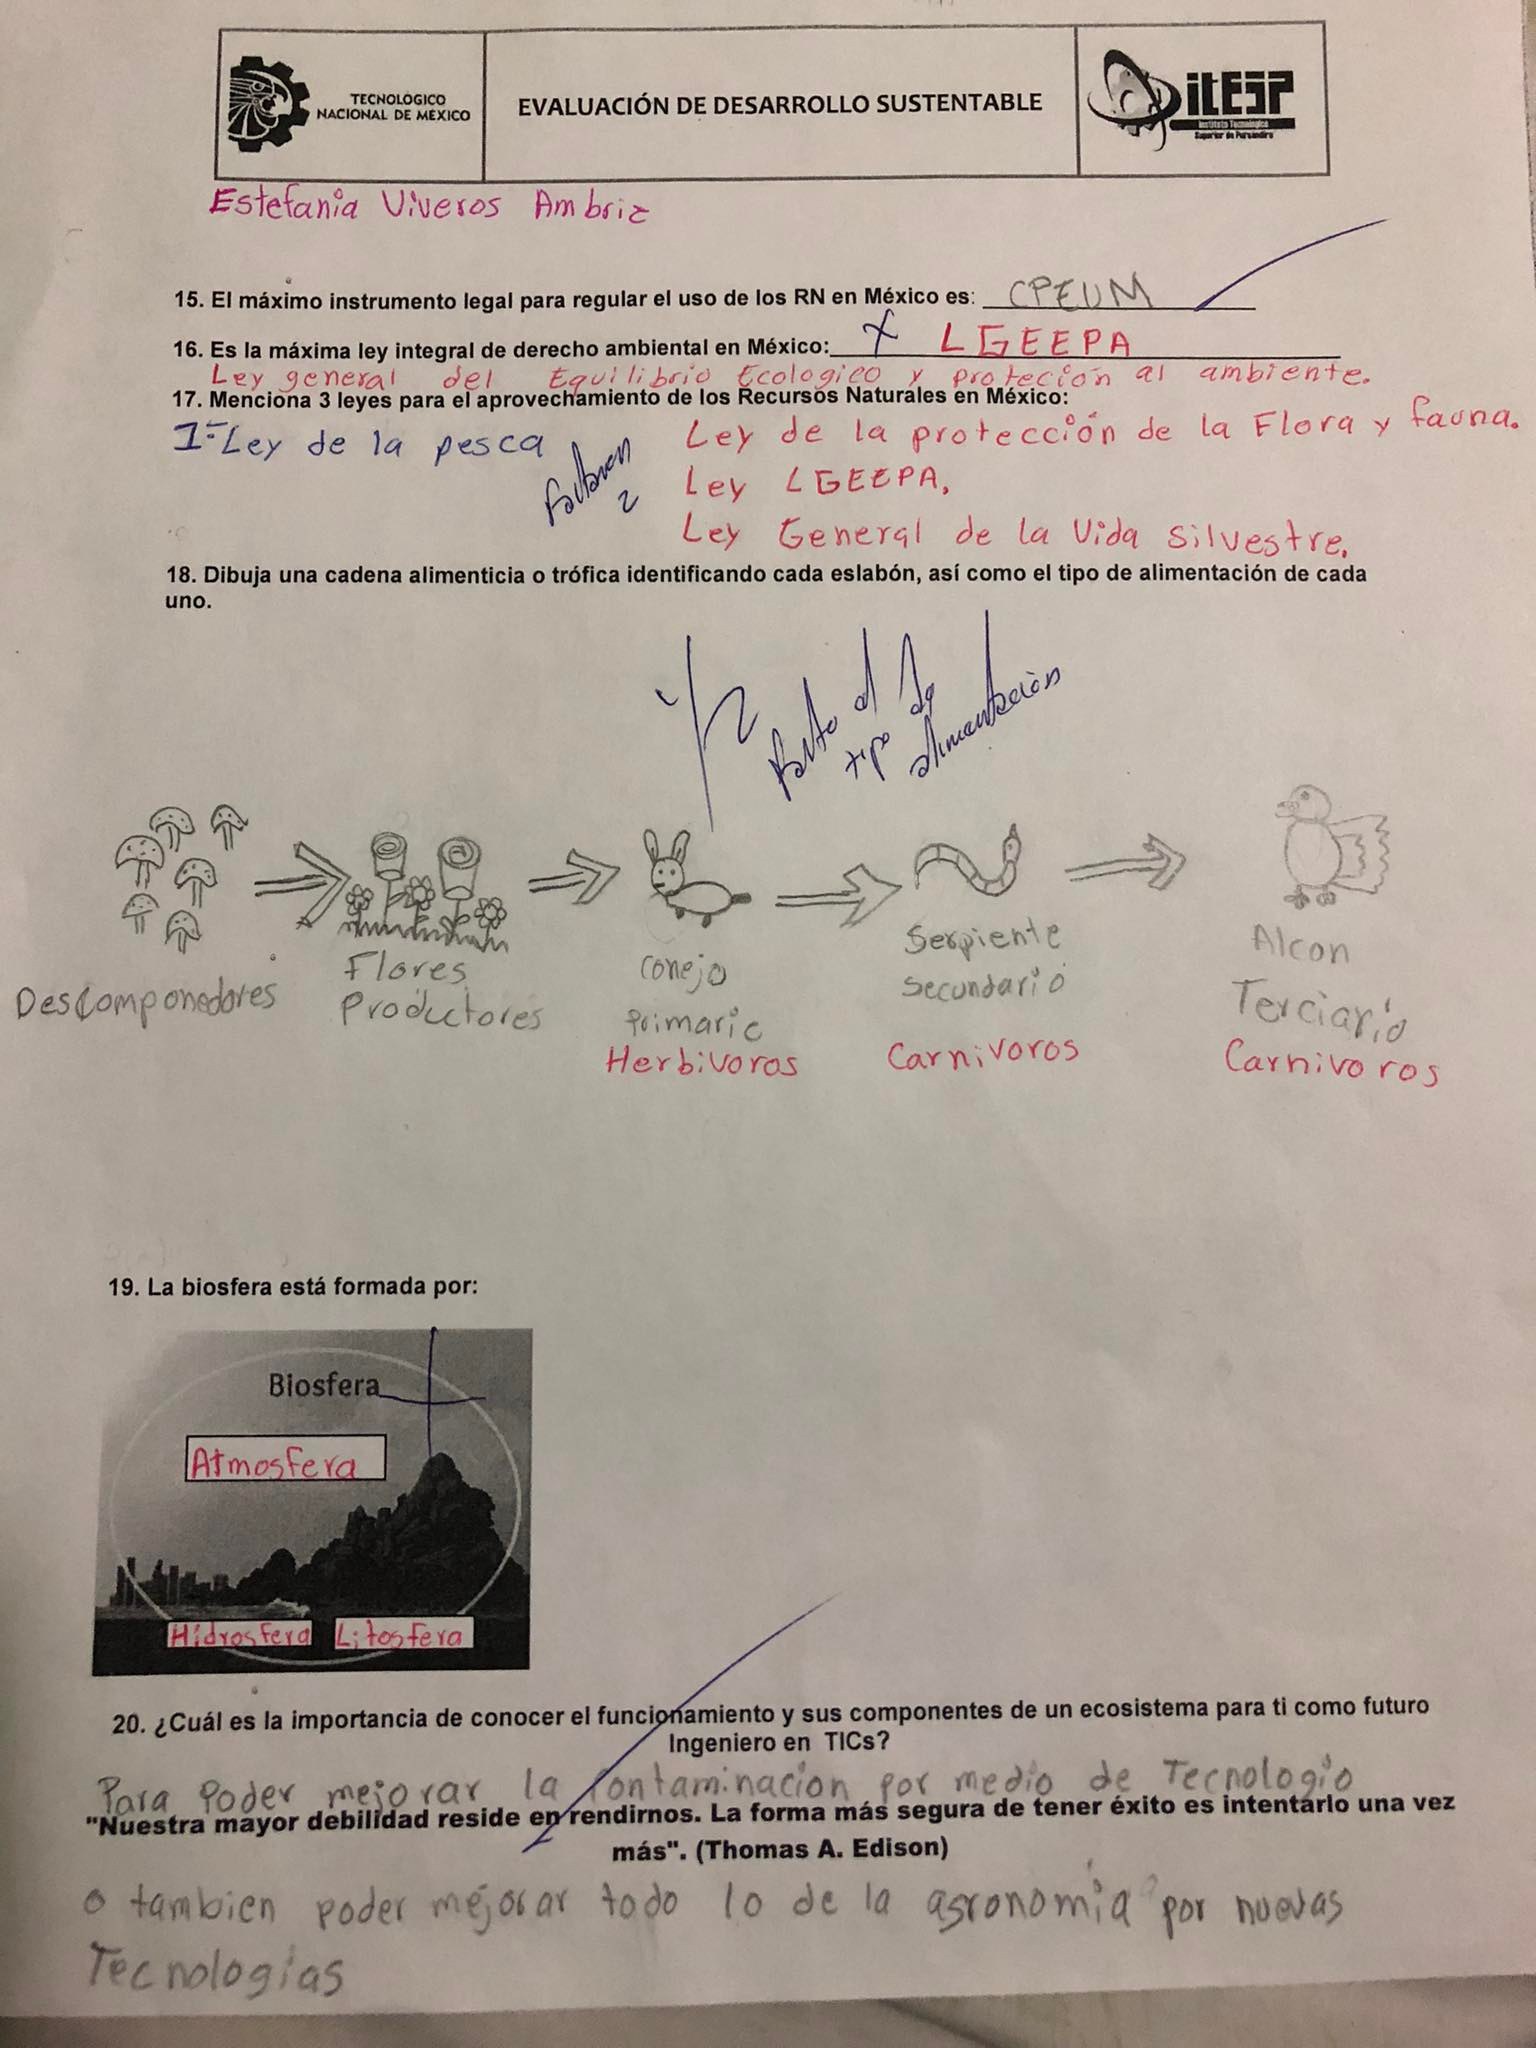 TECNOLÓGICO
NACIONAL DE MÉXICO
EVALUACIÓN DE DESARROLLO SUSTENTABLE
itESP
Instituto Tecnológico
Superior de Puruándiro
Estefania Viveros Ambriz
15. El máximo instrumento legal para regular el uso de los RN en México es: CPEUM
16. Es la máxima ley integral de derecho ambiental en México: x LGEEPA
Ley general del Equilibrio Ecologico y proteción al ambiente.
17. Menciona 3 leyes para el aprovechamiento de los Recursos Naturales en México:
1-Ley de la pesca
Faltaron
2
Ley de la protección de la Flora y fauna.
Ley LGEEPA.
Ley General de la Vida Silvestre.
18. Dibuja una cadena alimenticia o trófica identificando cada eslabón, así como el tipo de alimentación de cada
uno.
1/2
Falto el
tipo de
alimentación
Descomponedores
Flores
Productores
Conejo
Primario
Herbivoros
Serpiente
Secundario
Carnivoros
Alcon
Terciario
Carnivoros
19. La biosfera está formada por:
Biosfera
Atmosfera
Hidrosfera Litosfera
20. ¿Cuál es la importancia de conocer el funcionamiento y sus componentes de un ecosistema para ti como futuro
Ingeniero en TICs?
Para Poder mejorar la contaminacion por medio de Tecnologio
"Nuestra mayor debilidad reside en rendirnos. La forma más segura de tener éxito es intentarlo una vez
más". (Thomas A. Edison)
o tambien poder mejorar todo lo de la agronomia por nuevas
Tecnologias